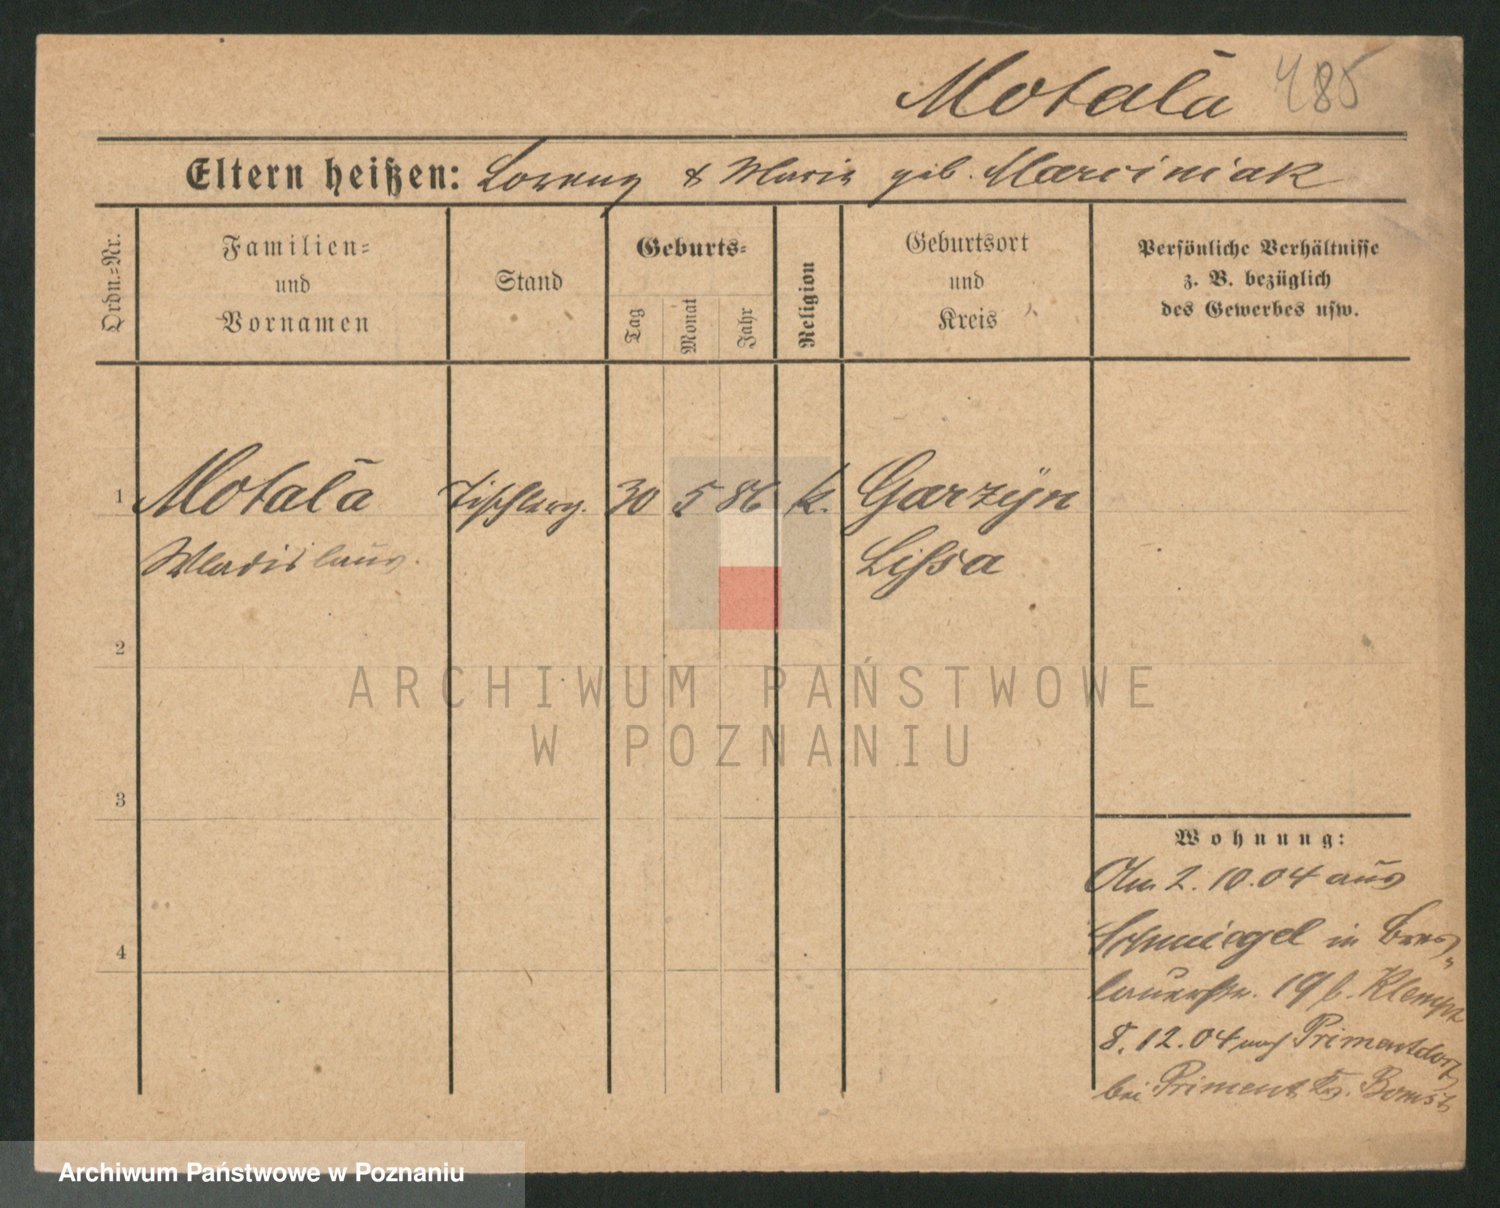 Motala 485
Eltern heißen: Lorenz & Marie geb. Marciniak
Ordn.=Nr.
Familien=
und
Vornamen
Stand
Geburts=
Tag
Monat
Jahr
Religion
Geburtsort
und
Kreis
Persönliche Verhältnisse
z. B. bezüglich
des Gewerbes usw.
1 Motala Tischlerg. 30 5 86 k. Garzyn
Wladislaus. Lissa
2
ARCHIWUM PAŃSTWOWE
W POZNANIU
3
Wohnung:
Am 2. 10. 04 aus
4
Schmiegel in Bres=
lauerstr. 19 b. Klempt
8. 12. 04 nach Primentdorf
bei Priment Kr. Bomst
Archiwum Państwowe w Poznaniu